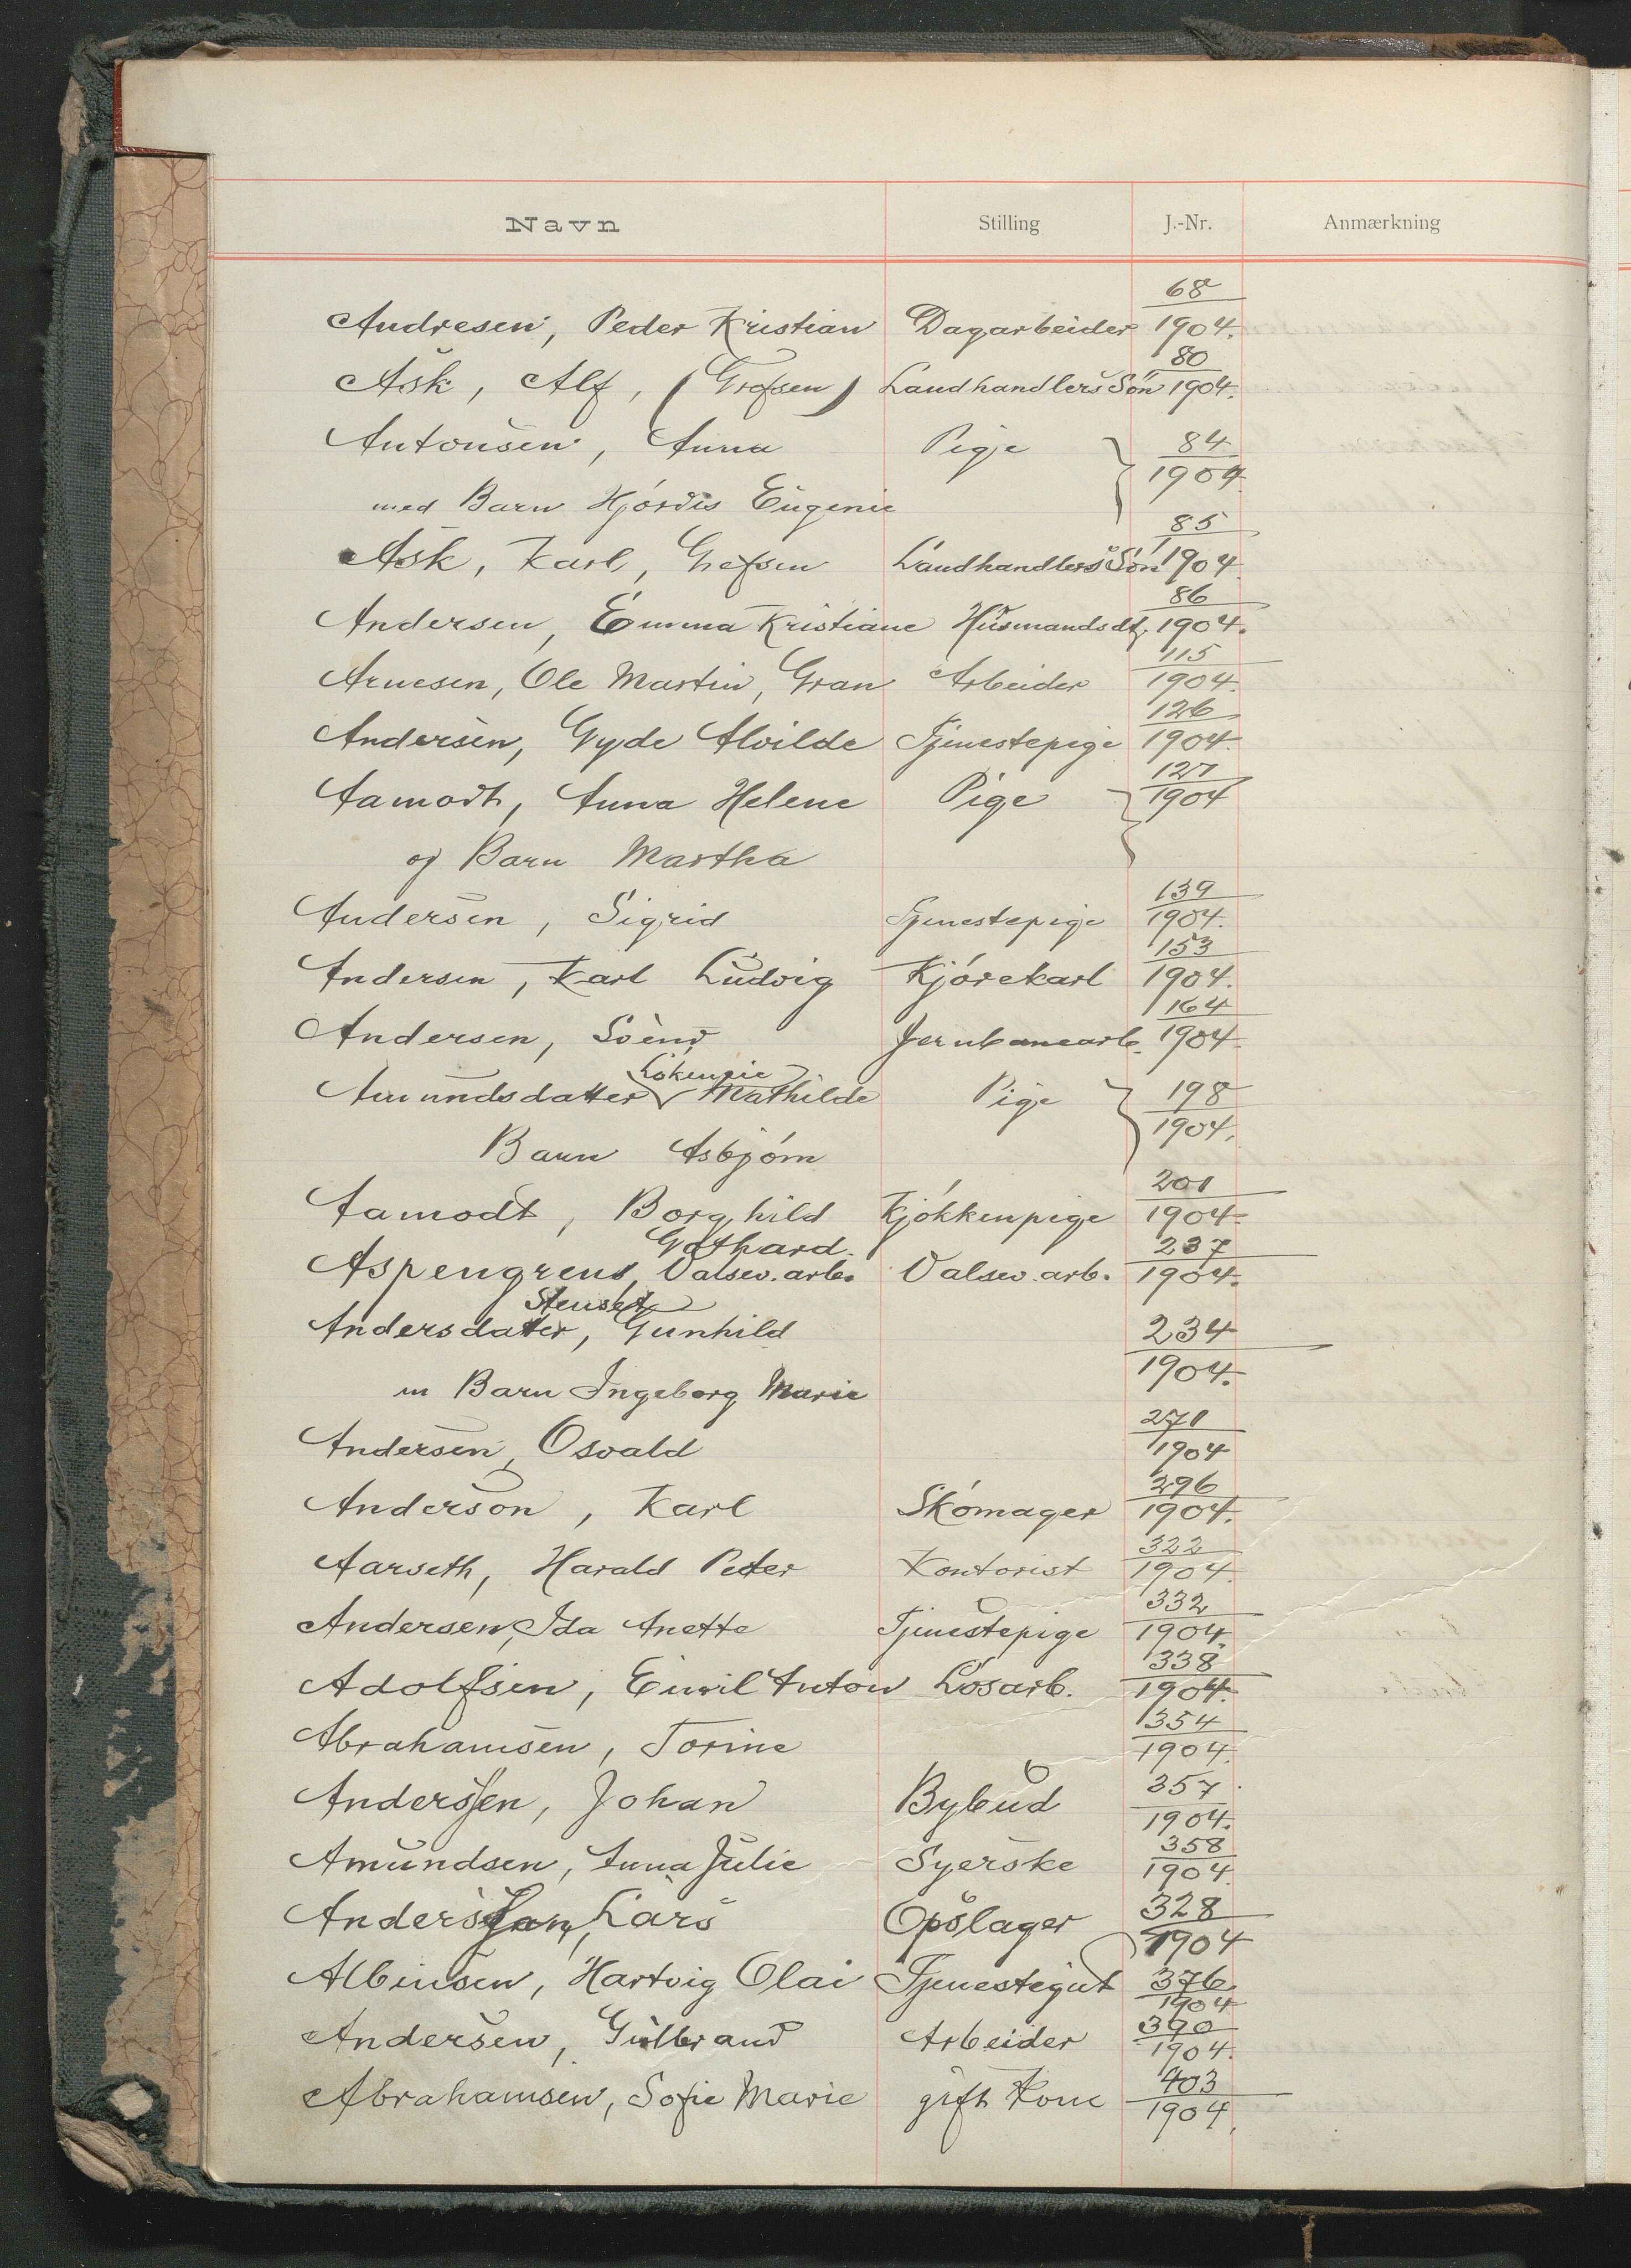 Navn Stilling J.-Nr. Anmærkning
Andresen, Peder Kristian Dagarbeider 68/1904.
Ask, Alf, (Grefsen) Landhandlers Søn 80/1904.
Antonsen, Anna Pige 84/1904
med Barn Hjørdis Eugenie
Ask, Karl, Grefsen Landhandlers Søn 85/1904
Andersen, Emma Kristiane Husmandsdt. 86/1904.
Arnesen, Ole Martin, Gran Arbeider 115/1904.
Andersen, Gyde Alvilde Tjenestepige 126/1904.
Aamodt, Anna Helene Pige 127/1904
og Barn Martha
Andersen, Sigrid Tjenestepige 139/1904.
Andersen, Karl Ludvig Kjørekarl 153/1904.
Andersen, Svend Jernbanearb. 164/1904
Løkengie
Amundsdatter Mathilde Pige 198/1904.
Barn Asbjørn
Aamodt, Borghild Kjøkkenpige 201/1904.
Gothard.
Aspengrens, Valsev. arb. Valsev. arb. 237/1904.
Stenset
Andersdatter, Gunhild 234/1904.
m Barn Ingeborg Marie
Andersen, Osvald 271/1904
Anderson, Karl Skomager 296/1904.
Aarseth, Harald Peter Kontorist 322/1904.
Andersen, Ida Anette Tjenestepige 332/1904.
Adolfsen, Emil Anton Løsarb. 338/1904.
Abrahamsen, Torine 354/1904.
Anderssen, Johan Bybud 357/1904.
Amundsen, Anna Julie Syerske 358/1904.
Anderssen, Lars Opslager 328/1904
Albinsen, Hartvig Olai Tjenestegut 376/1904
Andersen, Gulbrand Arbeider 390/1904.
Abrahamsen, Sofie Marie gift Kone 403/1904.